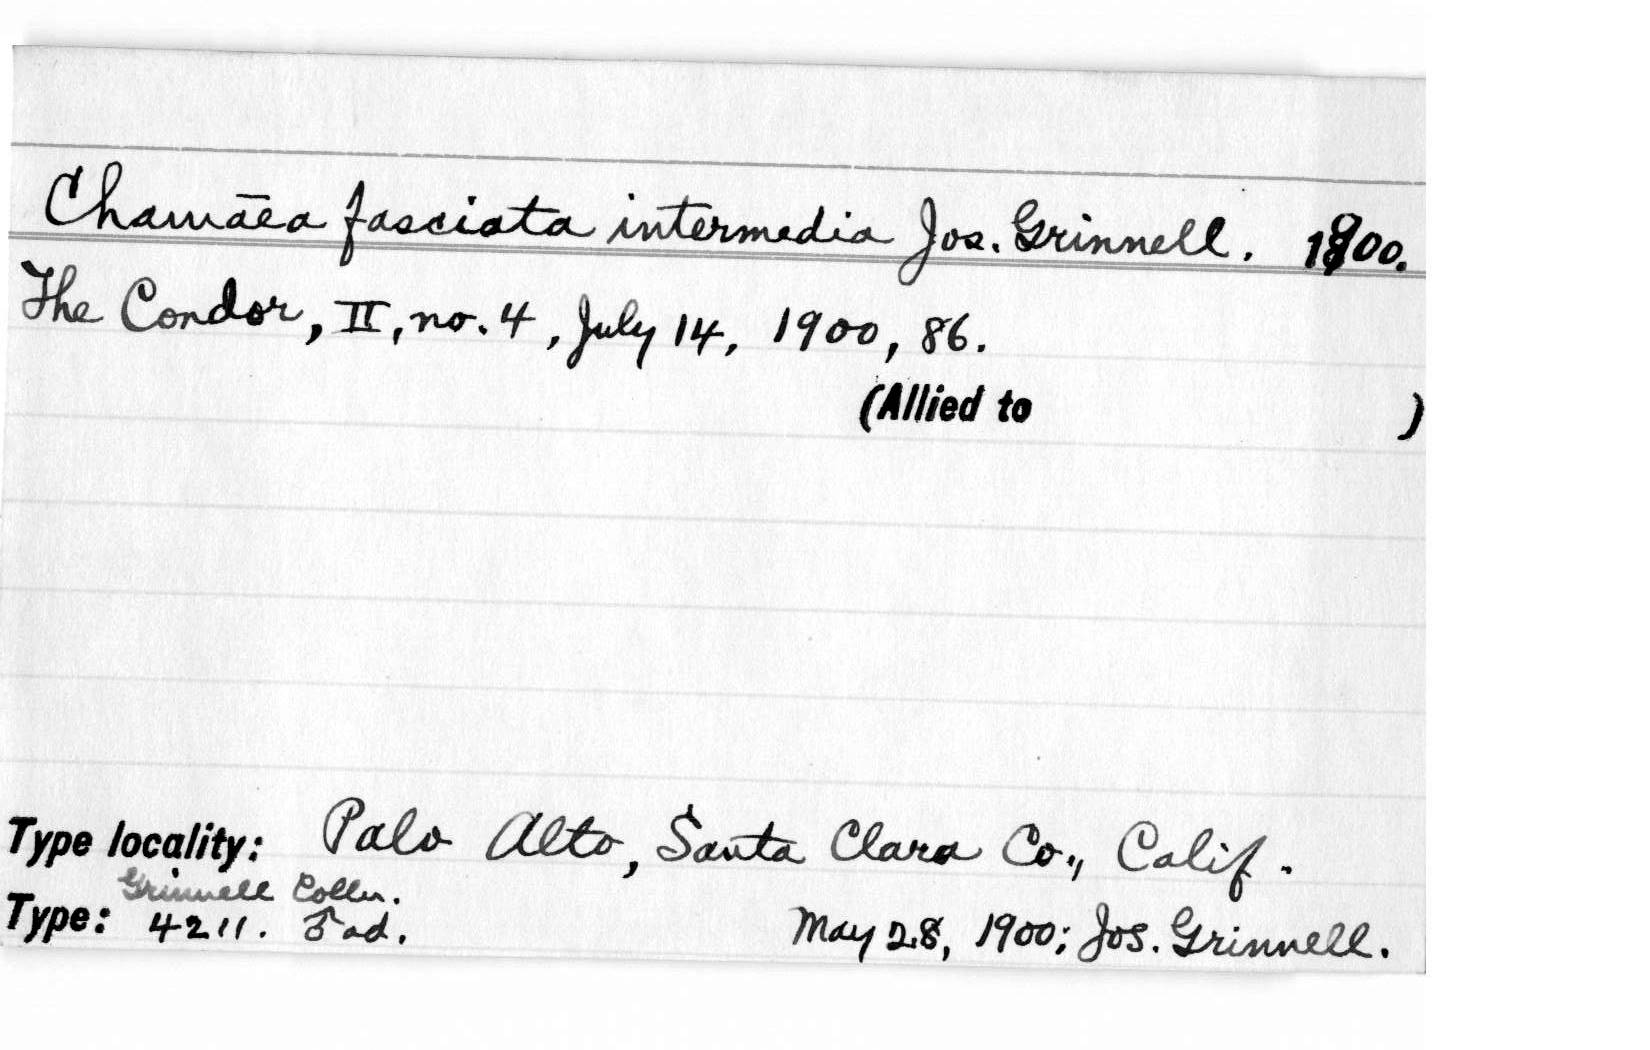 Chamaea fasciata intermedia Jos. Grinnell. 1900.
The Condor, II, no. 4, July 14, 1900, 86.
(Allied to )
Type locality: Palo Alto, Santa Clara Co., Calif.
Grinnell Colln.
Type: 4211. ♂ ad. May 28, 1900; Jos. Grinnell.